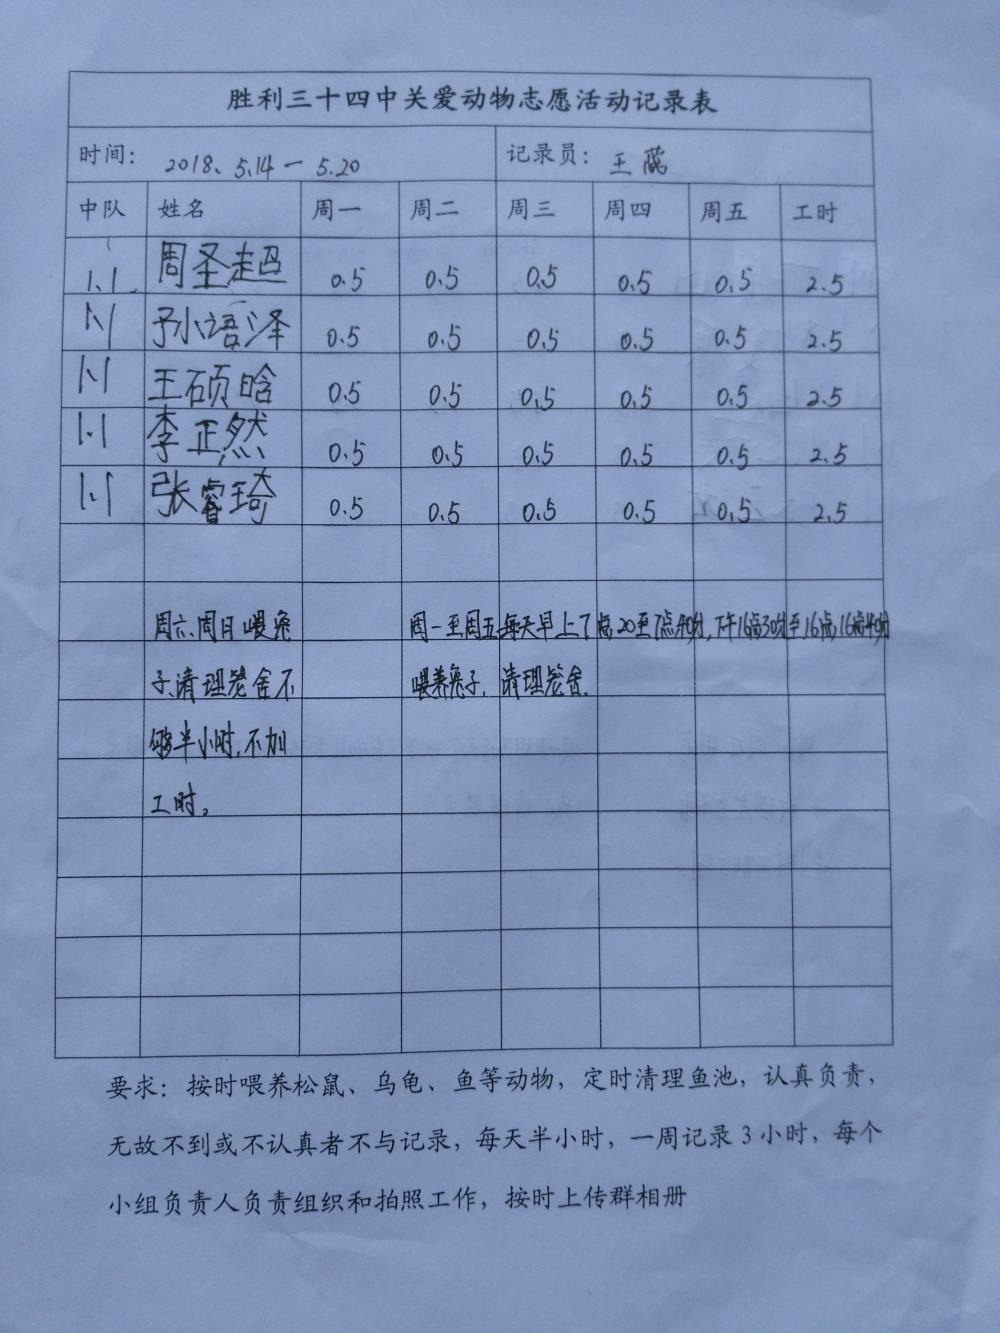 胜利三十四中关爱动物志愿活动记录表
时间： 2018.5.14一5.20 记录员：王蕊
中队 姓名 周一 周二 周三 周四 周五 工时
1.1 周圣超 0.5 0.5 0.5 0.5 0.5 2.5
1.1 孙语泽 0.5 0.5 0.5 0.5 0.5 2.5
1.1 王硕晗 0.5 0.5 0.5 0.5 0.5 2.5
1.1 李正然 0.5 0.5 0.5 0.5 0.5 2.5
1.1 张睿琦 0.5 0.5 0.5 0.5 0.5 2.5
周六、周日喂兔 周一至周五每天早上7点20至7点40分，下午16点30分至16点16点40分
子、清理笼舍不 喂养兔子，清理笼舍。
够半小时，不加
工时。
要求：按时喂养松鼠、乌龟、鱼等动物，定时清理鱼池，认真负责，
无故不到或不认真者不与记录，每天半小时，一周记录3小时，每个
小组负责人负责组织和拍照工作，按时上传群相册